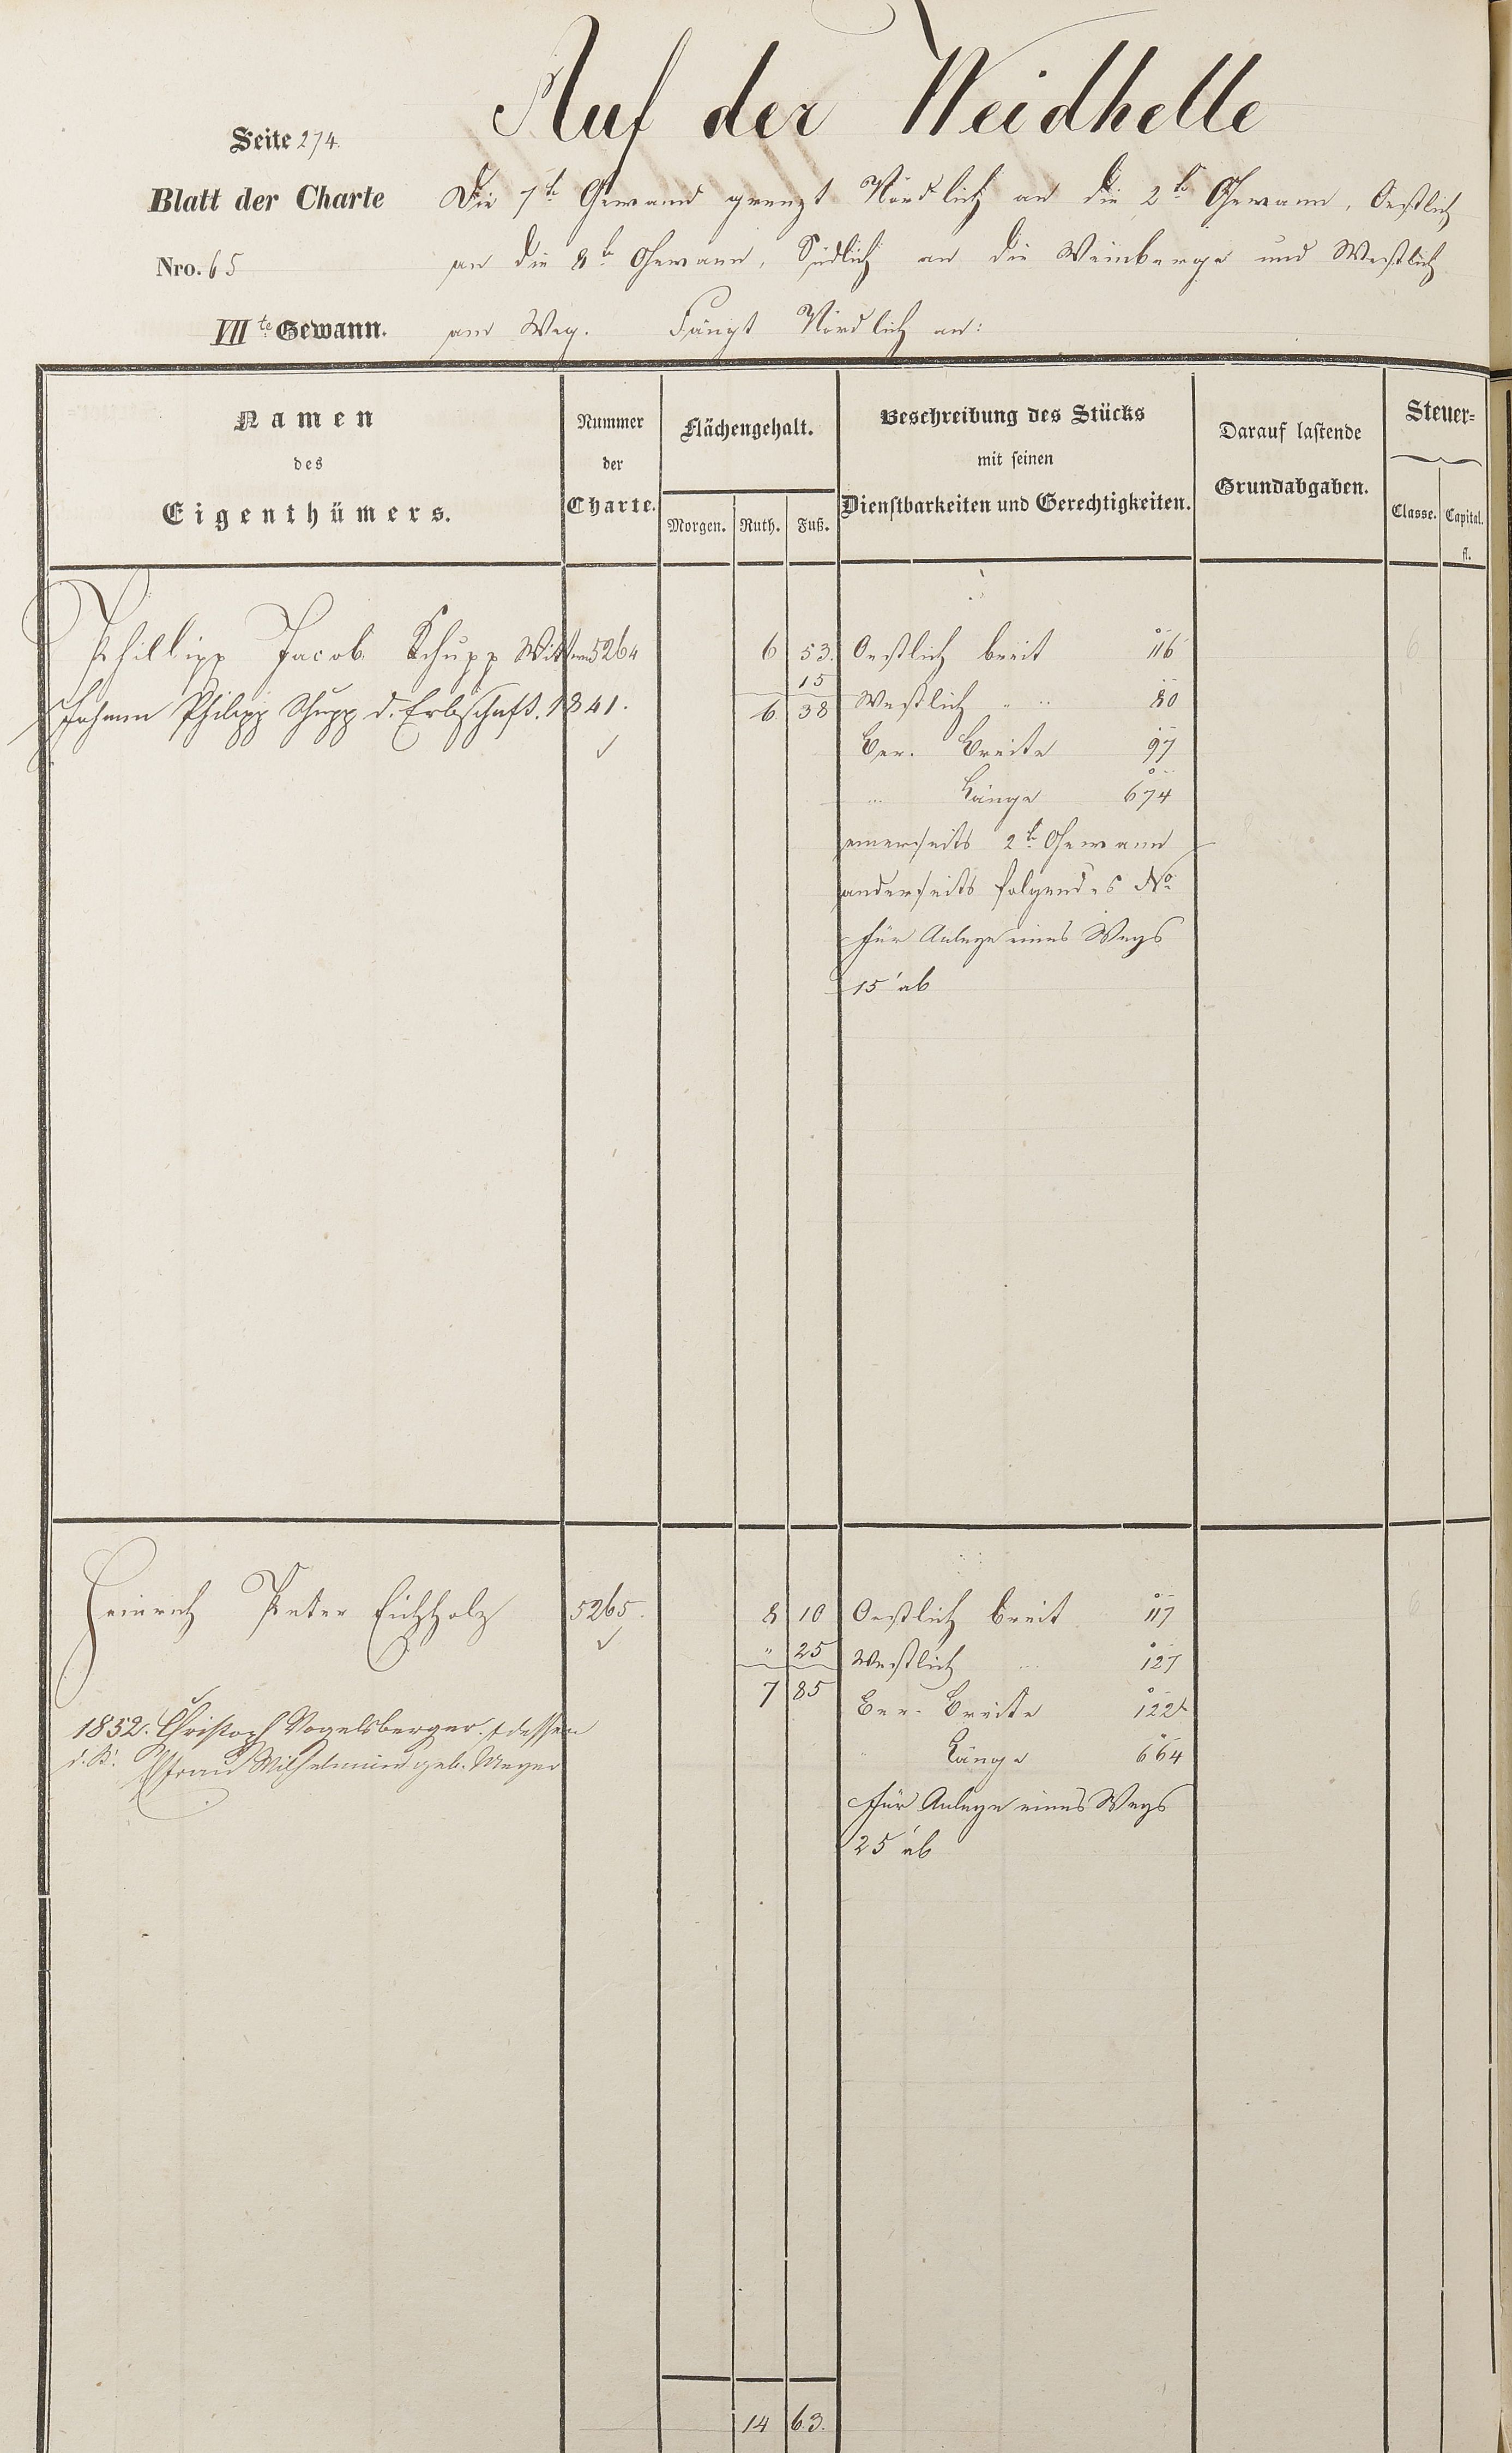 Auf der Weidhelle
Seite 274.
Blatt der Charte
Nro. 65
VII te Gewann.
Die 7te Gewann grenzt Nördlich an die 2te Gewann, Oestlich
an die 8te Gewann, Südlich an die Weinberge und Westlich
am Weg. Fängt Nördlich an:
Namen
des
Eigenthümers.
Nummer
der
Charte.
Flächengehalt.
Morgen. Ruth. Fuß.
Beschreibung des Stücks
mit seinen
Dienstbarkeiten und Gerechtigkeiten.
Darauf lastende
Grundabgaben.
Steuer-
Classe. Capital.
fl.
Phillipp Jacob Schupp Wittwe 5264 6 53. Oestlich breit 116 6
15
Johann Philipp Schupp d. Erbschaft. 1841. 6 38 Westlich " " 80
Ber. Breite 97
" Länge 674
einerseits 2te Gewann
anderseits folgendes No
für Anlage eines Wegs
15' ab
Heinrich Peter Eichholz 5265. 8 10 Oestlich breit 117 6
" 25 Westlich " 127
7 85 Ber. Breite 122
1852. Christoph Vogelsberger. & dessen
d. K. Ehfrau Wilhelmine geb. Meyer
" Länge 664
für Anlage eines Wegs
25' ab
14 63.